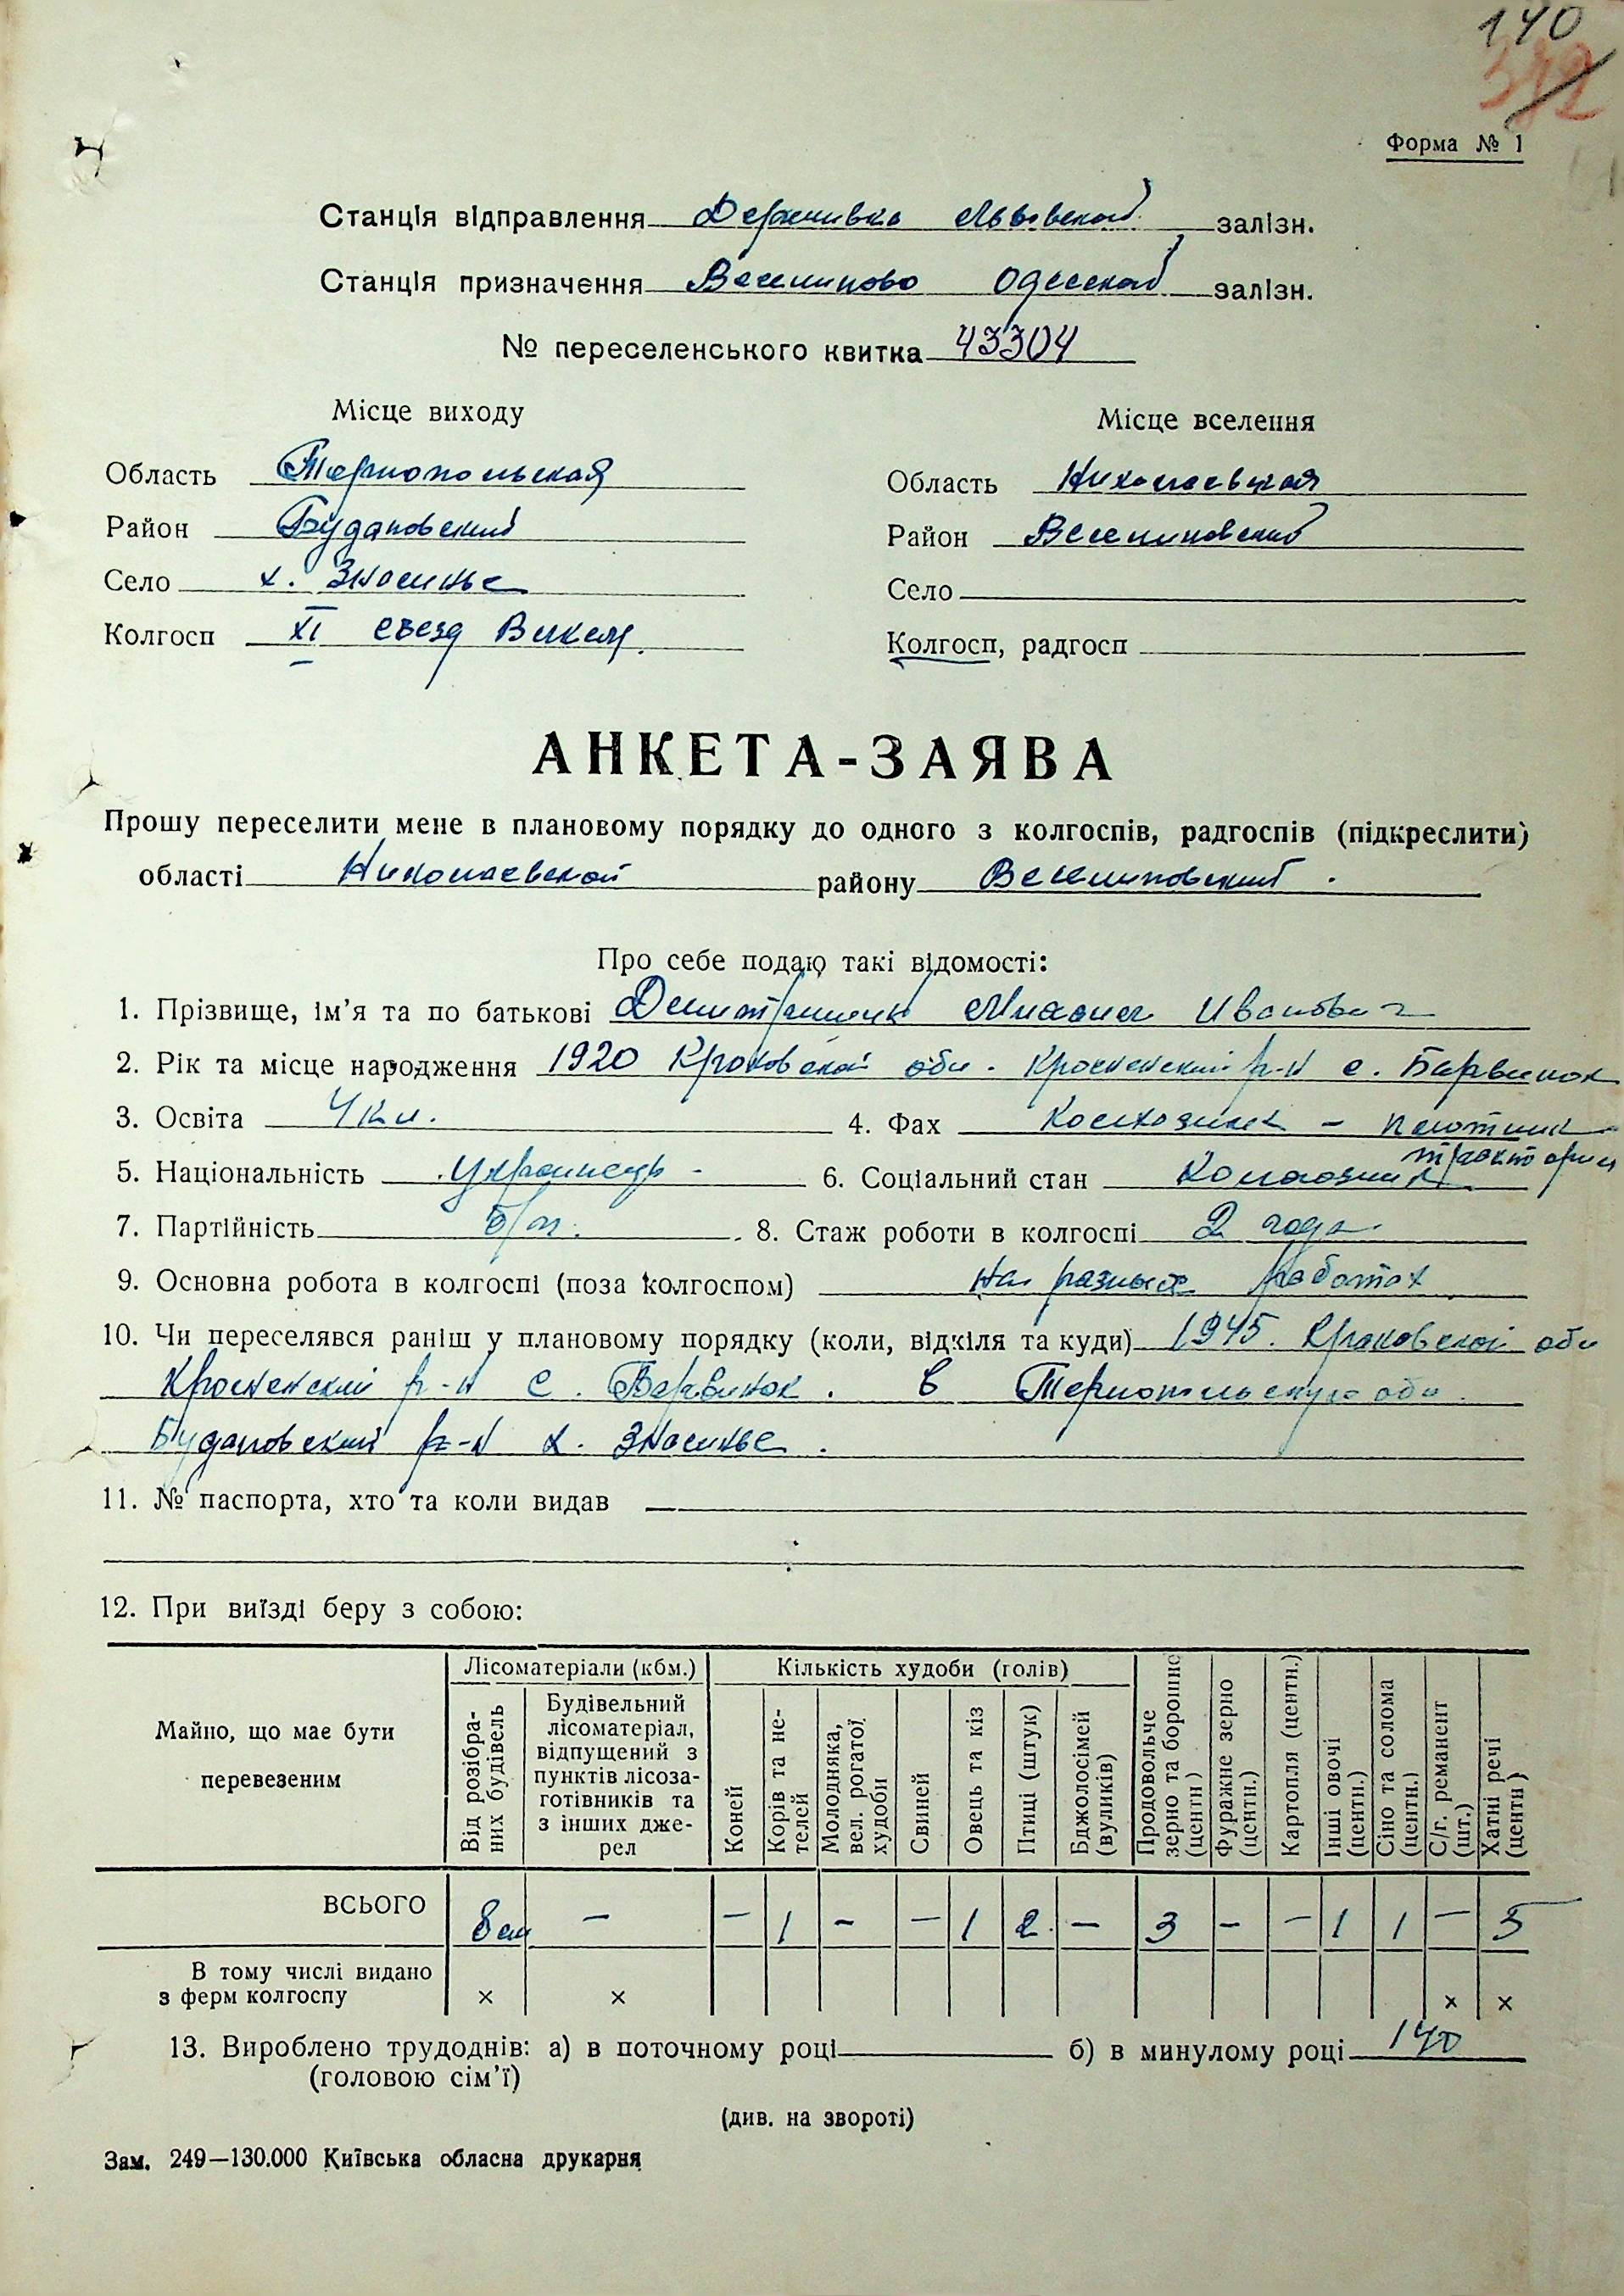 140
382
Форма № 1
Станція відправлення Деренивка Львовской залізн.
Станція призначення Веселиново Одесской залізн.
№ переселенського квитка 43304
Місце виходу
Місце вселення
Область Тернопольская
Область Николаевская
Район Будановский
Район Веселиновский
Село х. Зносинье
Село
Колгосп XI съезд
Колгосп, радгосп
АНКЕТА-ЗАЯВА
Прошу переселити мене в плановому порядку до одного з колгоспів, радгоспів (підкреслити)
області Николаевской району Веселиновский
Про себе подаю такі відомості:
1. Прізвище, ім’я та по батькові Михаил Иванович
2. Рік та місце народження 1920 Краковской обл. Кросненский р-н с. Барвинок
3. Освіта 4 кл. 4. Фах Колхозник - плотник
тракторист
5. Національність Украинец 6. Соціальний стан Колхозник
7. Партійність б/п. 8. Стаж роботи в колгоспі 2 года
9. Основна робота в колгоспі (поза колгоспом) на разных работах
10. Чи переселявся раніш у плановому порядку (коли, відкіля та куди) 1945. Краковской обл
Кросненский р-н с. Барвинок. в Тернопольскую обл.
Будановский р-н х. Зносинье.
11. № паспорта, хто та коли видав —
12. При виїзді беру з собою:
Майно, що має бути перевезеним
Лісоматеріали (кбм.)
Кількість худоби (голів)
Від розібра-
них будівель
Будівельний
лісоматеріал,
відпущений з
пунктів лісоза-
готівників та
з інших дже-
рел
Коней
Корів та не-
телей
Молодняка,
вел. рогатої
худоби
Свиней
Овець та кіз
Птиці (штук)
Бджолосімей
(вуликів)
Продовольче
зерно та борошно
(центн)
Фуражне зерно
(центн.)
Картопля (центн.)
Інші овочі
(центн.)
Сіно та солома
(центн.)
С/г. реманент
(шт.)
Хатні речі
(центн)
ВСЬОГО 8 — — 1 — — 1 2 — 3 — — 1 1 — 5
В тому числі видано
з ферм колгоспу × × × ×
13. Вироблено трудоднів: а) в поточному році б) в минулому році 140
(головою сім’ї)
(див. на звороті)
Зам. 249—130.000 Київська обласна друкарня